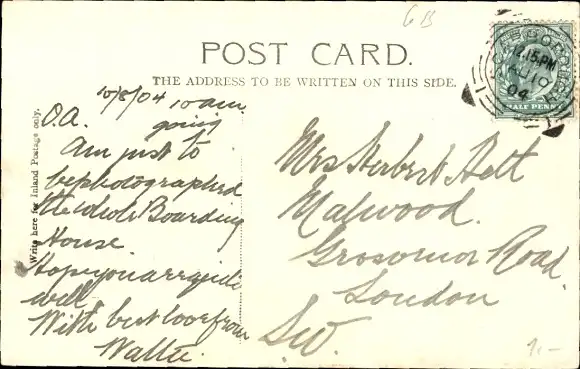 GB
POST CARD.
THE ADDRESS TO BE WRITTEN ON THIS SIDE.
Write here for Inland Postage only.
10/8/04 10 am
D.A.
going
Am just to
be photographed
the whole Boarding
House.
Hope you are quite
well
With best love from
Wallie.
Mrs Herbert
Malwood.
Grosvenor Road.
London
S.W.
1.15 PM
AU 10
04
HALF PENNY
1.-